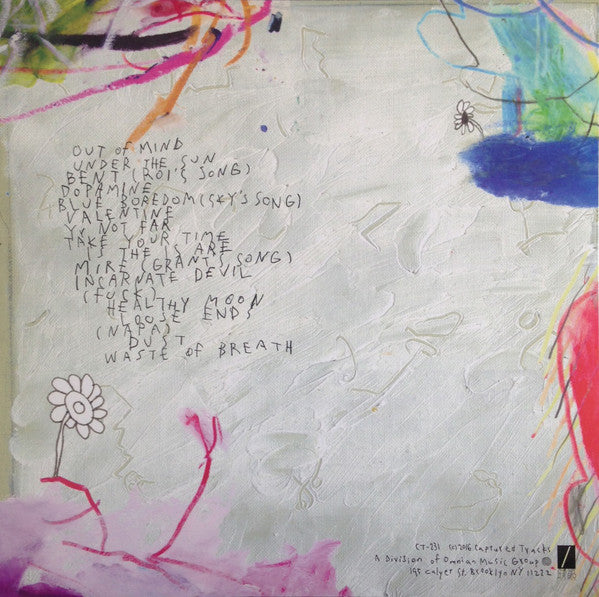 OUT OF MIND
UNDER THE SUN
BENT (ROI'S SONG)
DOPAMINE
BLUE BOREDOM (SKY'S SONG)
VALENTINE
YR NOT FAR
TAKE YOUR TIME
IS THE IS ARE
MIRE (GRANT'S SONG)
INCARNATE DEVIL
(FUCK)
HEALTHY MOON
LOOSE ENDS
(NAPA)
DUST
WASTE OF BREATH
CT-231 (c) 2016 Captured Tracks
A Division of Omnian Music Group
195 Calyer St Brooklyn NY 11222